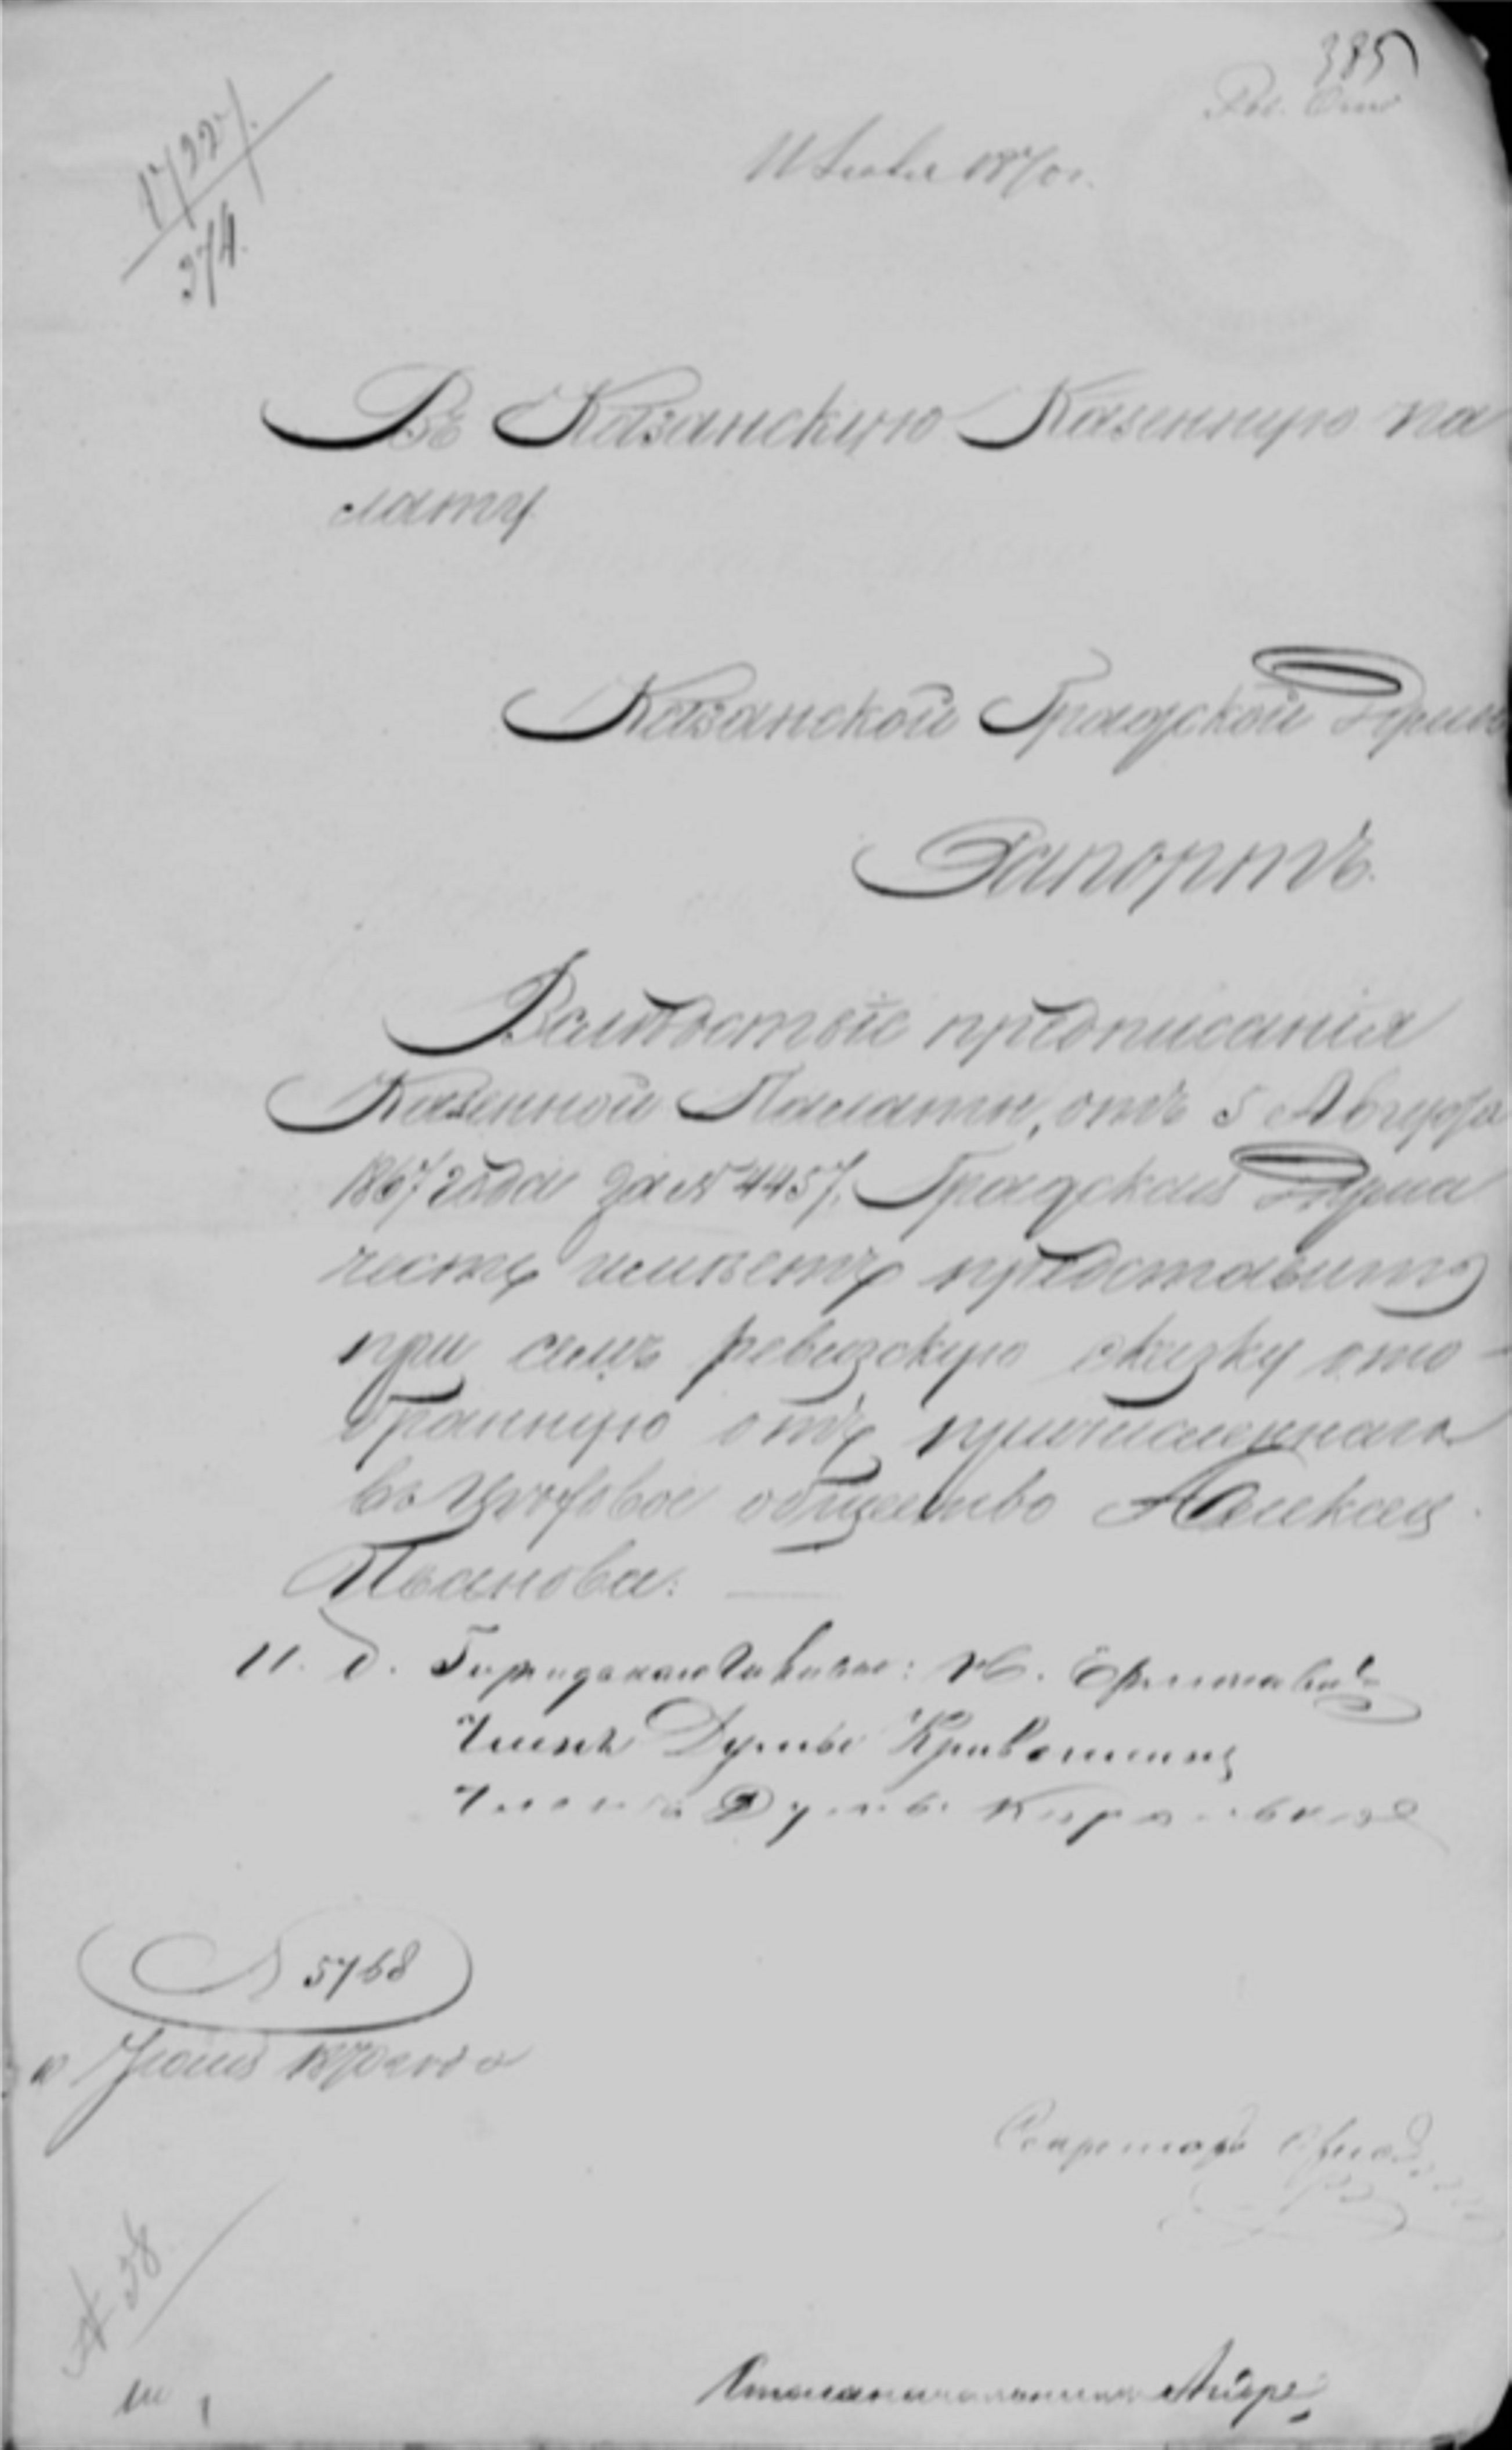 385
17227.
374.
11 Июля 1870 г.
Въ Казанскую Казенную па
лату
Казанской Градской Думы
Рапортъ.
Вслѣдствіе предписанія
Казенной Палаты, отъ 5 Августа
1867 года за № 4457. Градская Дума
честь имѣетъ представить
при семъ ревизскую сказку ото-
бранную отъ причисленнаго
въ Цеховое общество Алексѣя
Иванова.
И. д. Городскаго Головы: И.
Членъ Думы Кривошеинъ
Членъ Думы
№ 5768
Іюля 1870 года
Секретарь
№ 38
Столоначальникъ